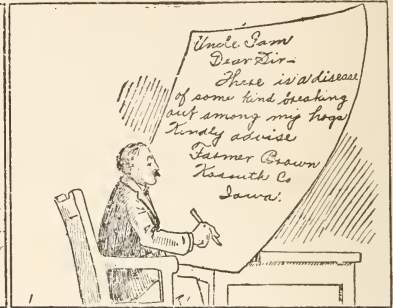 Uncle Sam
Dear Sir—
There is a disease
of some kind breaking
out among my hogs
Kindly advise
Farmer Brown
Kossuth Co
Iowa.
1